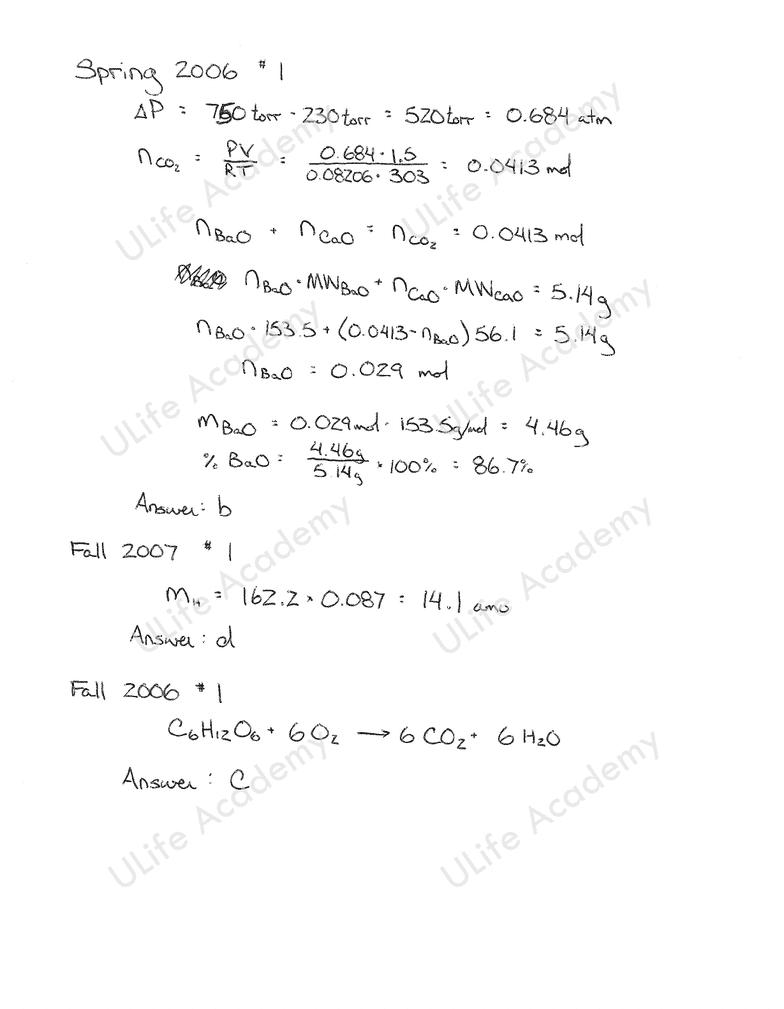 Spring 2006 #1
ΔP = 750 torr - 230 torr = 520 torr = 0.684 atm
nCO₂ = PV/RT = 0.684 · 1.5 / 0.08206 · 303 = 0.0413 mol
nBaO + nCaO = nCO₂ = 0.0413 mol
nBaO · MWBaO + nCaO · MWCaO = 5.14g
nBaO · 153.5 + (0.0413 - nBaO) 56.1 = 5.14g
nBaO = 0.029 mol
mBaO = 0.029 mol · 153.5 g/mol = 4.46g
% BaO = 4.46g / 5.14g × 100% = 86.7%
Answer: b
Fall 2007 #1
mH = 162.2 × 0.087 = 14.1 amu
Answer: d
Fall 2006 #1
C₆H₁₂O₆ + 6 O₂ → 6 CO₂ + 6 H₂O
Answer: C
ULife Academy
ULife Academy
ULife Academy
ULife Academy
ULife Academy
ULife Academy
ULife Academy
ULife Academy